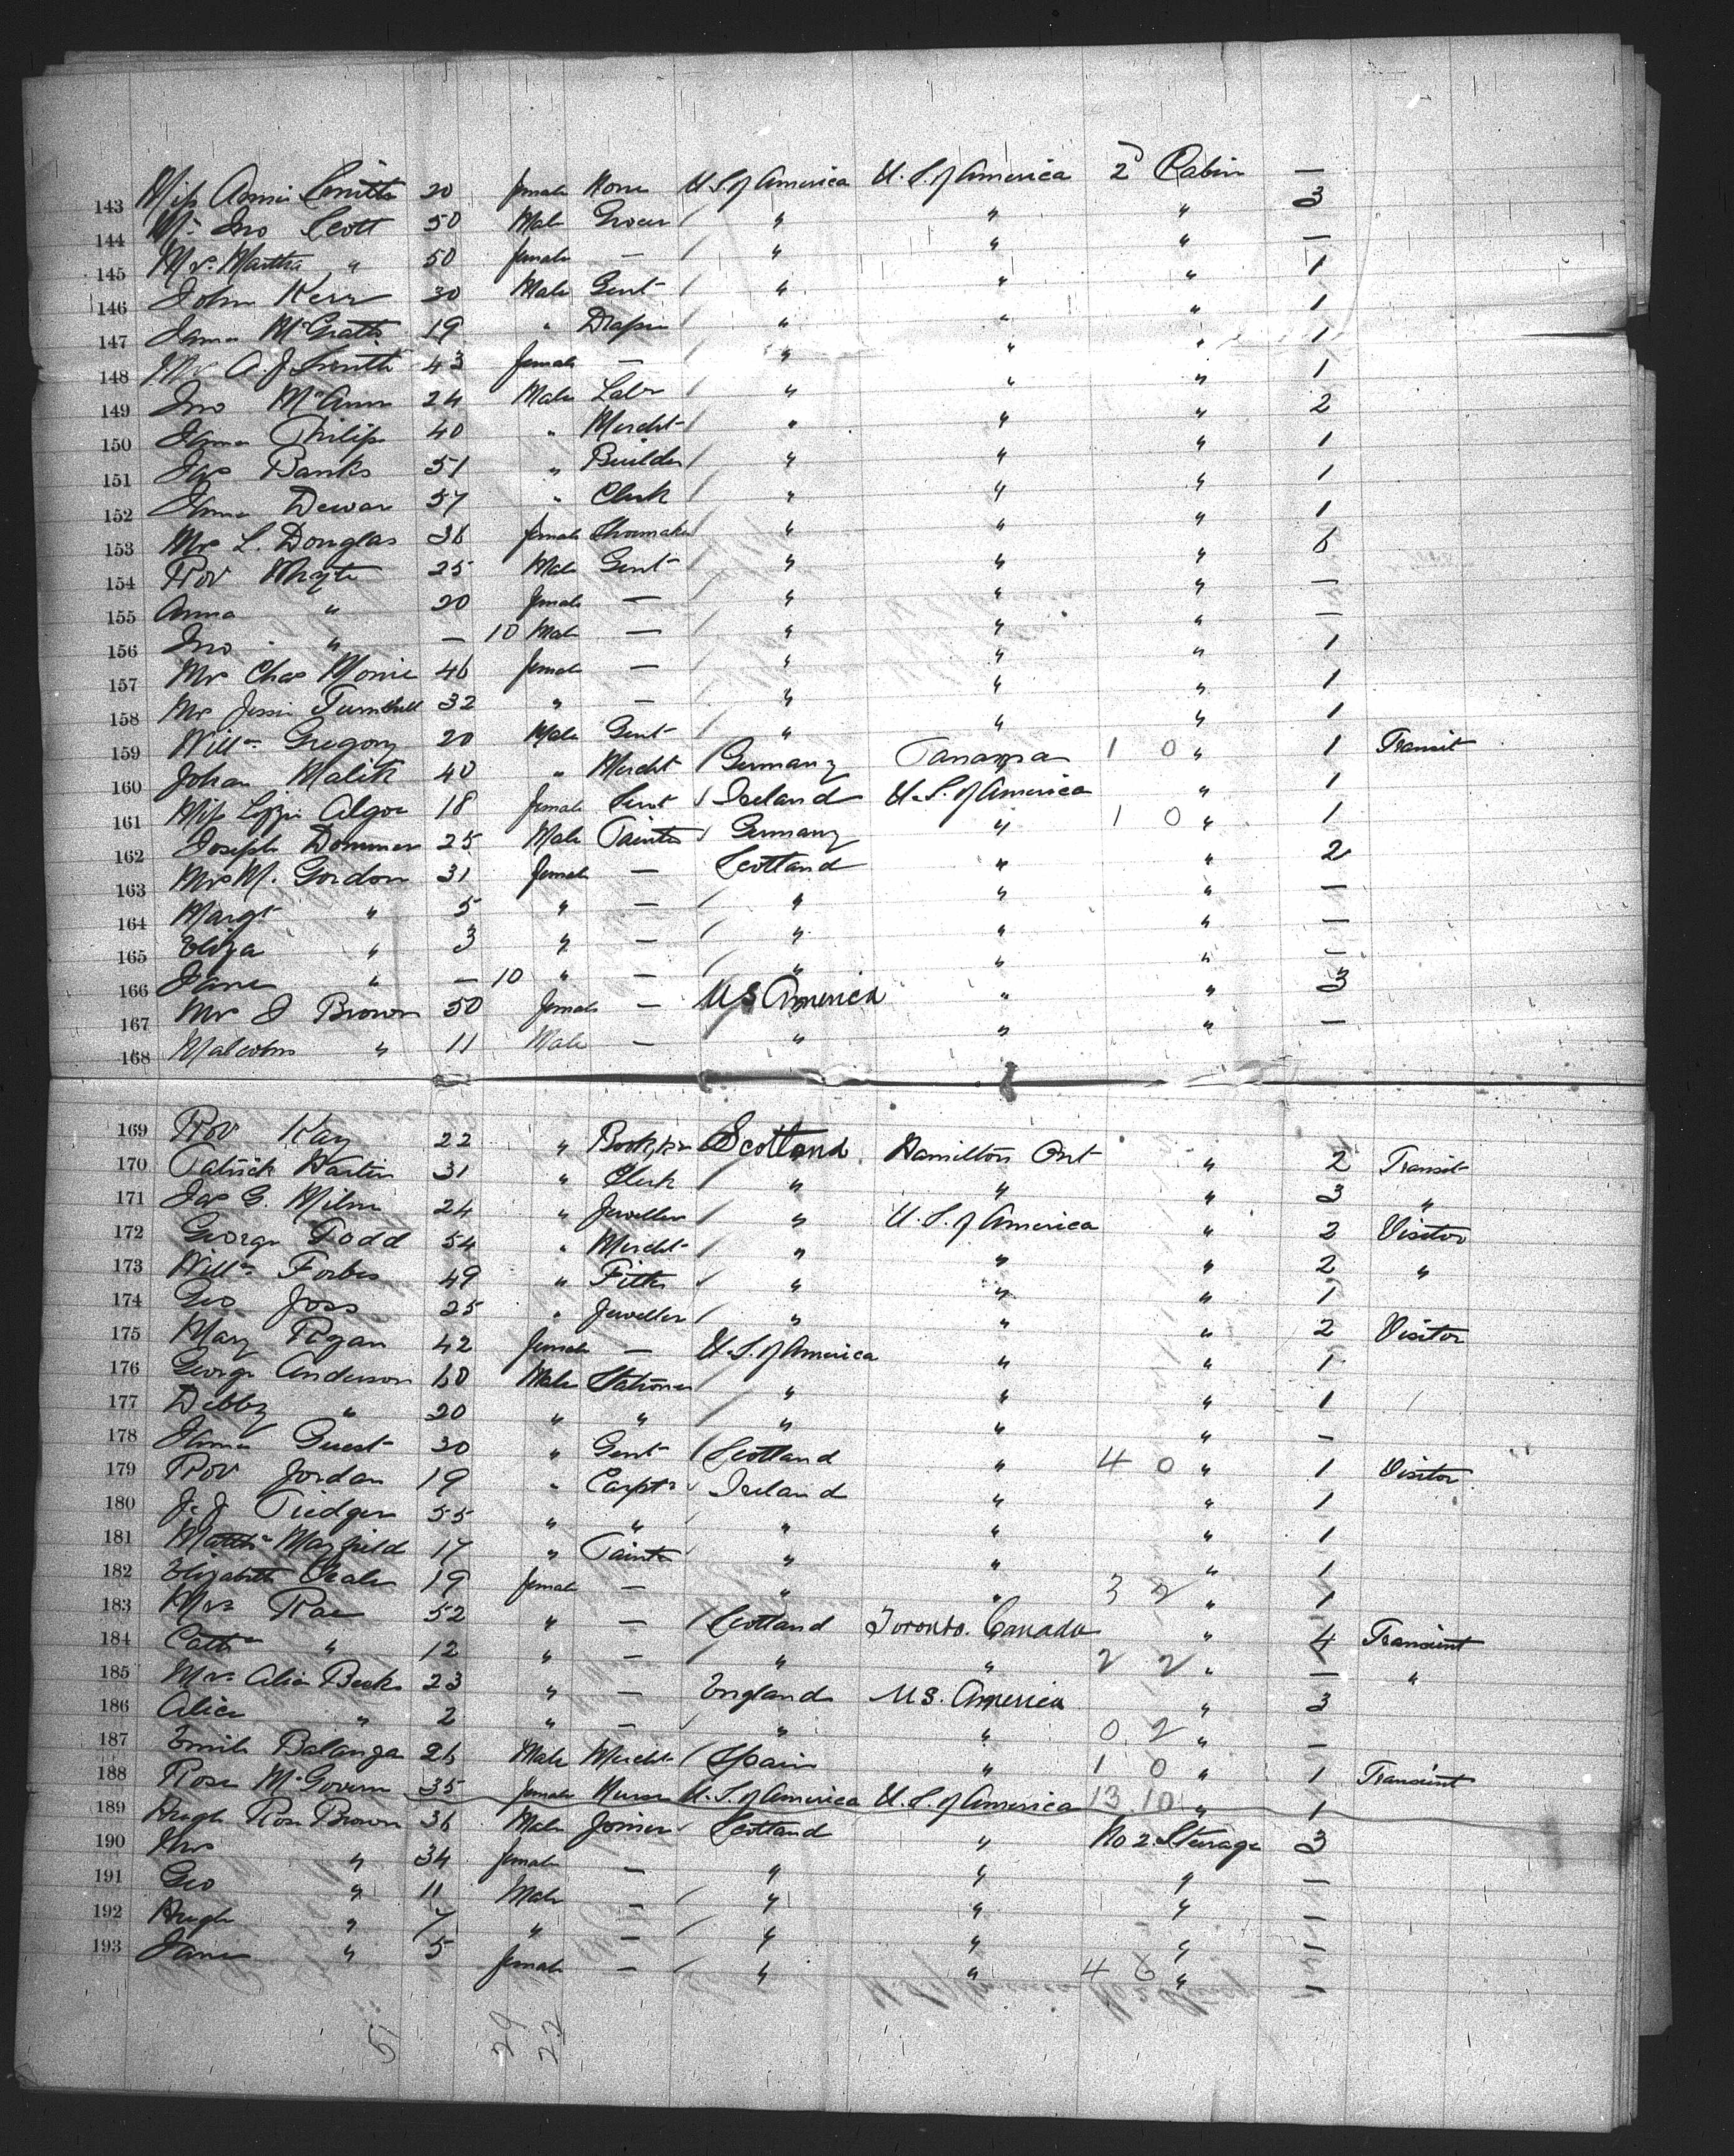 143 Miss Annie Smith 20 female None U.S. of America U.S. of America 2d Cabin —
144 Mr Jno Scott 50 Male Grocer / " " " 3
145 Mrs Martha " 50 female — / " " " —
146 John Kerr 30 Male Gent / " " " 1
147 James McGrath 19 " Draper / " " " 1
148 Mrs A. J. Smith 43 female — / " " " 1
149 Jno McCann 24 Male Labr " " " 1
150 James Philip 40 " Mercht / " " " 2
151 Jas Banks 51 " Builder / " " " 1
152 James Dewar 57 " Clerk / " " " 1
153 Mrs L. Douglas 36 female Shoemaker / " " " 1
154 Rob Whyte 25 Male Gent / " " " 6
155 Anna " 20 female — / " " " —
156 Jno " — 10 Male — / " " " —
157 Mrs Chas 46 female — / " " " 1
158 Mrs Jessie Turnbull 32 " — / " " " 1
159 Willm Gregory 20 Male Gent / " " " 1
160 Johan Malik 40 " Mercht / Germany Panama 1 0 " 1 Transit
161 Miss Lizzie Algoe 18 female Servt Ireland U.S. of America " 1
162 Joseph Dommer 25 Male Painter Germany " 1 0 " 1
163 Mrs M. Gordon 31 female — Scotland " " 2
164 Margt " 5 " — / " " " —
165 Eliza " 3 " — / " " " —
166 Jane " — 10 " — / " " " —
167 Mrs J Brown 50 female — U S America " " 3
168 Malcolm " 11 Male — " " " —
169 Rob Kay 22 " Bookkpr Scotland Hamilton Ont " 2 Transit
170 Patrick Martin 31 " Clerk / " " " 3 "
171 Jas G. Milne 24 " Jeweller / " U.S. of America " 2 Visitor
172 George Todd 54 " Mercht / " " " 2 "
173 Willm Forbes 49 " Fitter " " " 1
174 Geo Joss 25 " Jeweller / " " " 2 Visitor
175 Mary Rogan 42 female — U.S. of America " " 1
176 George Anderson 60 Male Stationer / " " " 1
177 Debby " 20 " " / " " " —
178 James Guest 30 " Gent / Scotland " 4 0 " 1 Visitor
179 Rob Jordan 19 " Carptr Ireland " " 1
180 J. J. 55 " " " " " 1
181 Mayfield 17 " Painter " " " 1
182 Elizabeth 19 female — " " 3 2 " 1
183 Mrs Rae 52 " — / Scotland Toronto. Canada " 4 Transient
184 Cathr " 12 " — " " 2 2 " — "
185 Mrs Alice Beck 23 " — England U.S. America " 3
186 Alice " 2 " — " " 0 2 " —
187 Emile Balanga 26 Male Mercht / Spain " 1 0 " 1 Transient
188 Rose McGovern 35 female Nurse U.S. of America U.S. of America 13 10 " 1
189 Hugh Rose Brown 36 Male Joiner Scotland " No 2 Steerage 3
190 Mrs " 34 female — " " " —
191 Geo " 11 Male — / " " " —
192 Hugh " 7 " — / " " " —
193 Jane " 5 female — / " " 4 6 " —
51 29 22